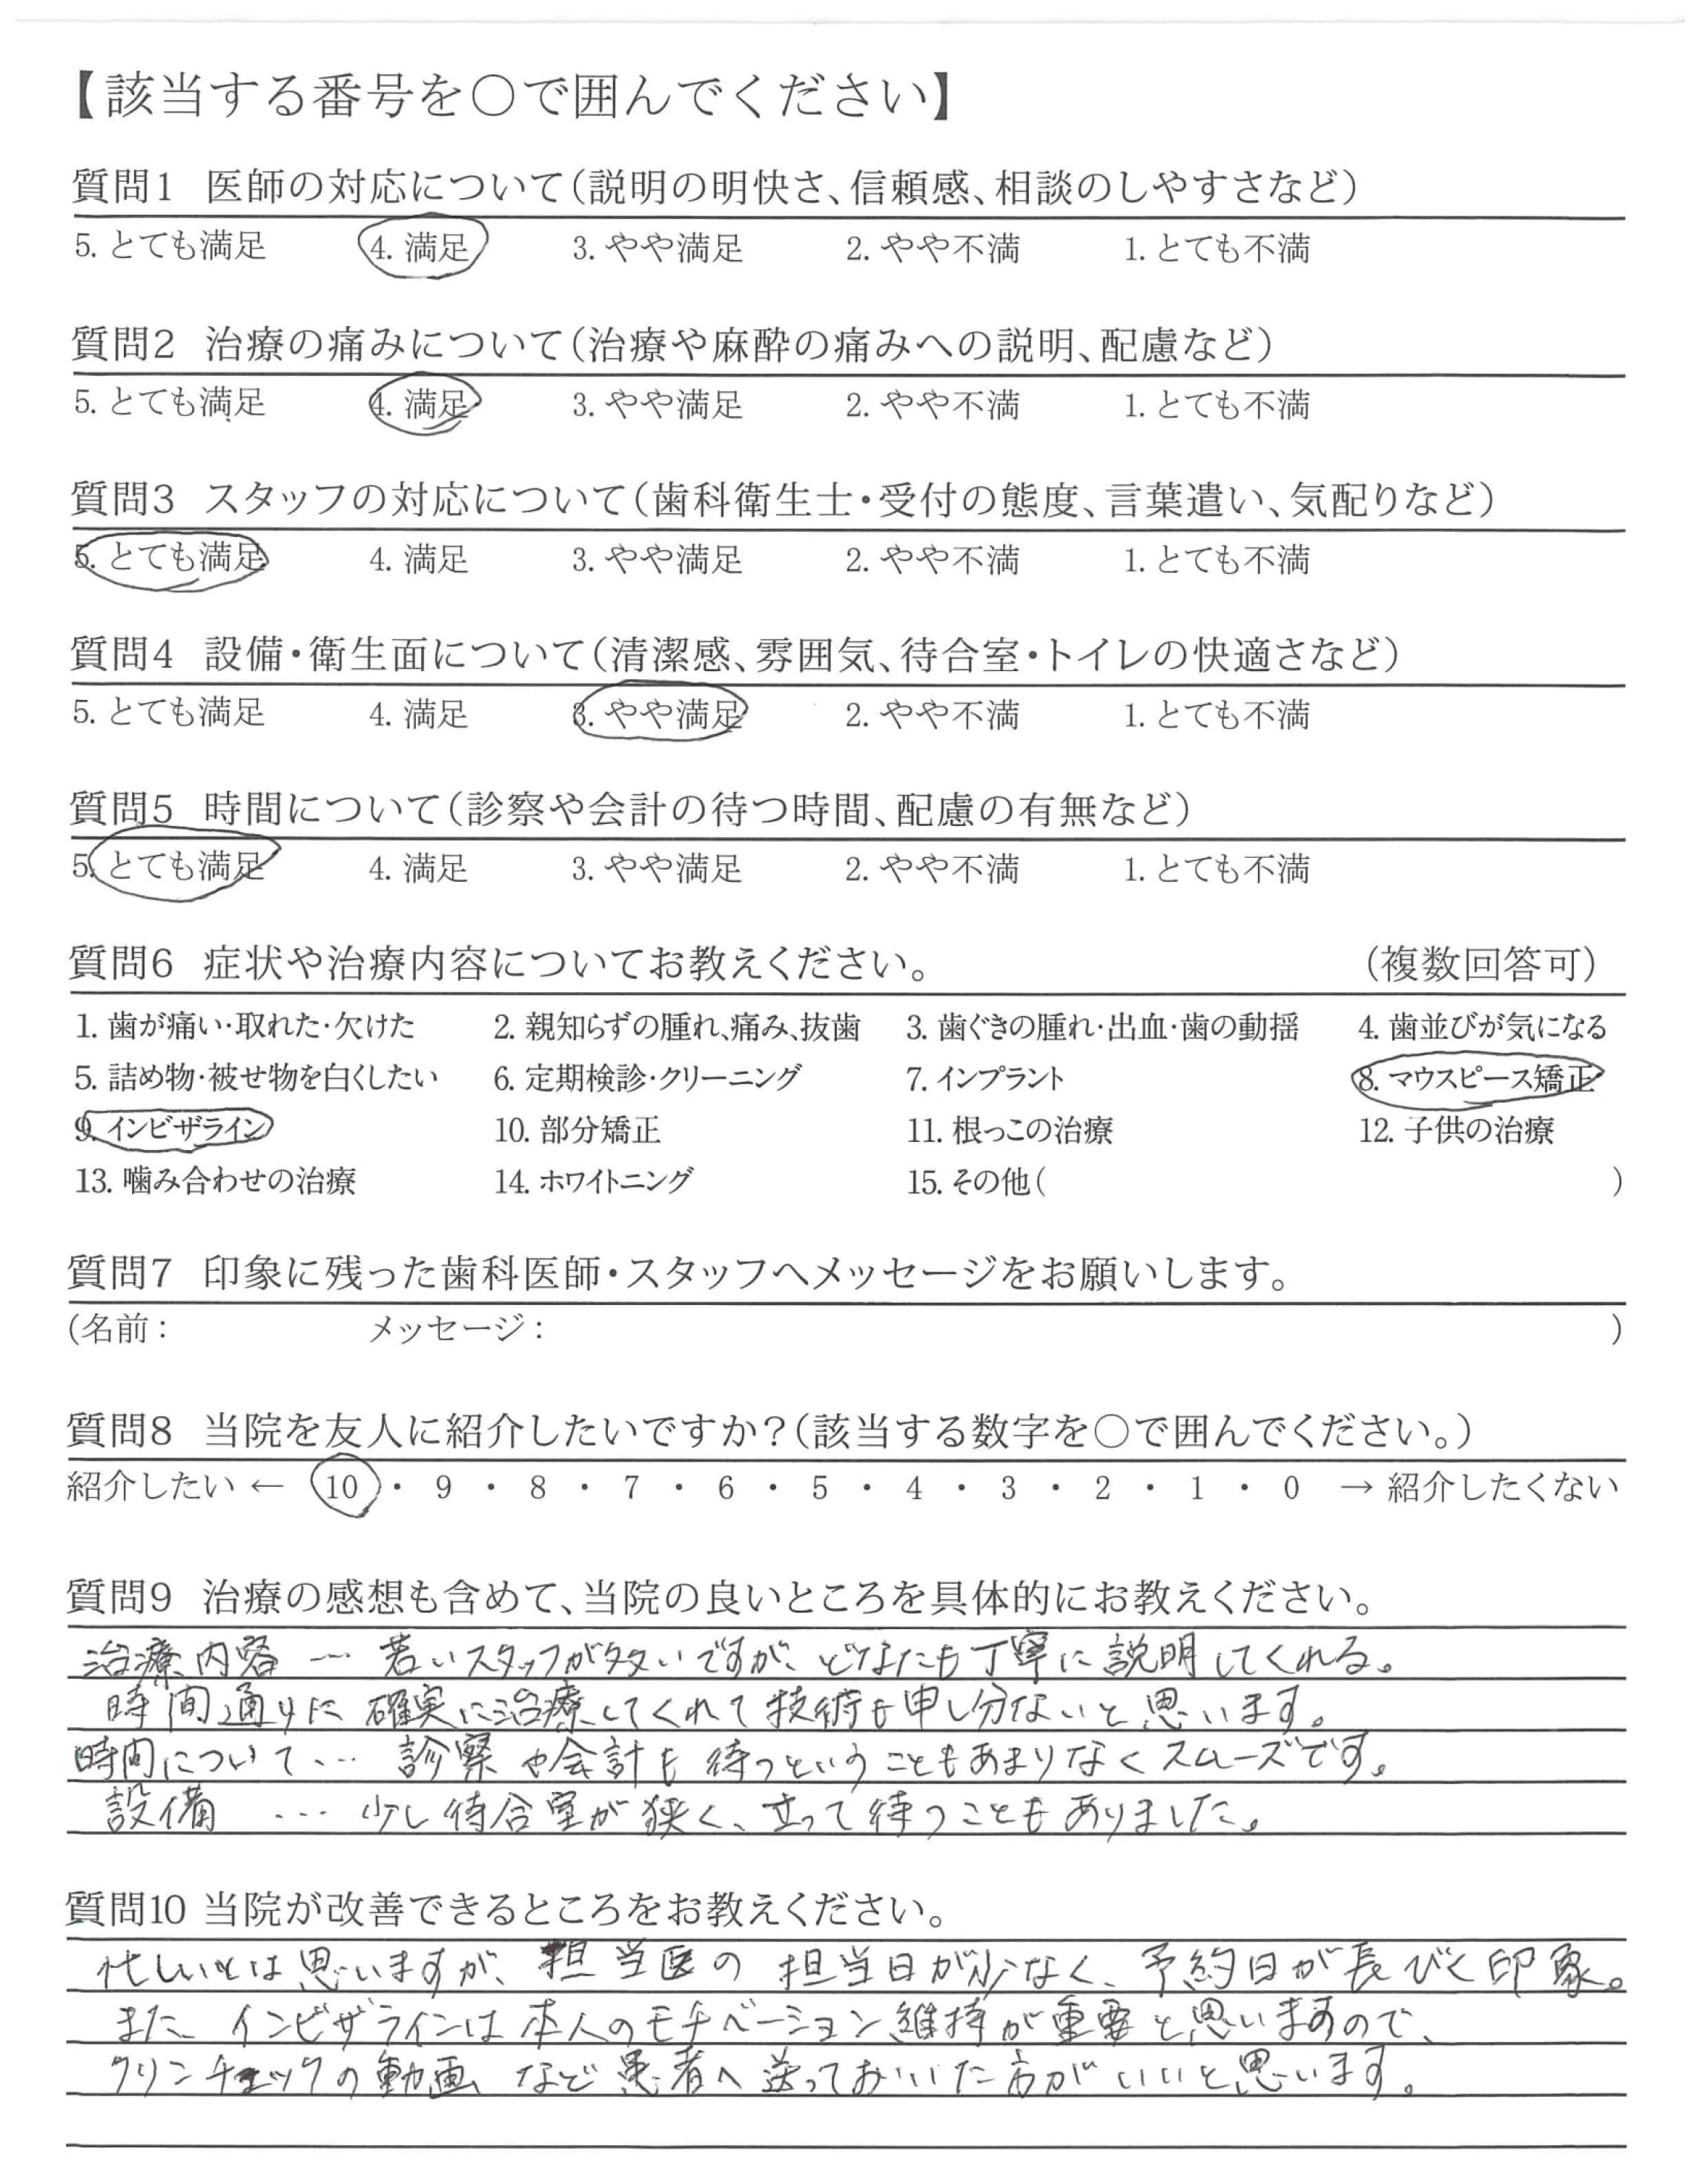 【該当する番号を○で囲んでください】
質問1 医師の対応について(説明の明快さ、信頼感、相談のしやすさなど)
5. とても満足 4. 満足 3. やや満足 2. やや不満 1. とても不満
質問2 治療の痛みについて(治療や麻酔の痛みへの説明、配慮など)
5. とても満足 4. 満足 3. やや満足 2. やや不満 1. とても不満
質問3 スタッフの対応について(歯科衛生士・受付の態度、言葉遣い、気配りなど)
5. とても満足 4. 満足 3. やや満足 2. やや不満 1. とても不満
質問4 設備・衛生面について(清潔感、雰囲気、待合室・トイレの快適さなど)
5. とても満足 4. 満足 3. やや満足 2. やや不満 1. とても不満
質問5 時間について(診察や会計の待つ時間、配慮の有無など)
5. とても満足 4. 満足 3. やや満足 2. やや不満 1. とても不満
質問6 症状や治療内容についてお教えください。 (複数回答可)
1. 歯が痛い・取れた・欠けた 2. 親知らずの腫れ、痛み、抜歯 3. 歯ぐきの腫れ・出血・歯の動揺 4. 歯並びが気になる
5. 詰め物・被せ物を白くしたい 6. 定期検診・クリーニング 7. インプラント 8. マウスピース矯正
9. インビザライン 10. 部分矯正 11. 根っこの治療 12. 子供の治療
13. 噛み合わせの治療 14. ホワイトニング 15. その他( )
質問7 印象に残った歯科医師・スタッフへメッセージをお願いします。
(名前: メッセージ: )
質問8 当院を友人に紹介したいですか?(該当する数字を○で囲んでください。)
紹介したい ← 10 ・ 9 ・ 8 ・ 7 ・ 6 ・ 5 ・ 4 ・ 3 ・ 2 ・ 1 ・ 0 → 紹介したくない
質問9 治療の感想も含めて、当院の良いところを具体的にお教えください。
治療内容 … 若いスタッフが多いですが、どなたも丁寧に説明してくれる。
時間通りに確実に治療してくれて技術も申し分ないと思います。
時間について… 診察や会計も待つということもあまりなくスムーズです。
設備 … 少し待合室が狭く、立って待つこともありました。
質問10 当院が改善できるところをお教えください。
忙しいとは思いますが、担当医の担当日が少なく、予約日が長びく印象。
また、インビザラインは本人のモチベーション維持が重要と思いますので、
クリンチェックの動画など患者へ送っておいいた方がいいと思います。